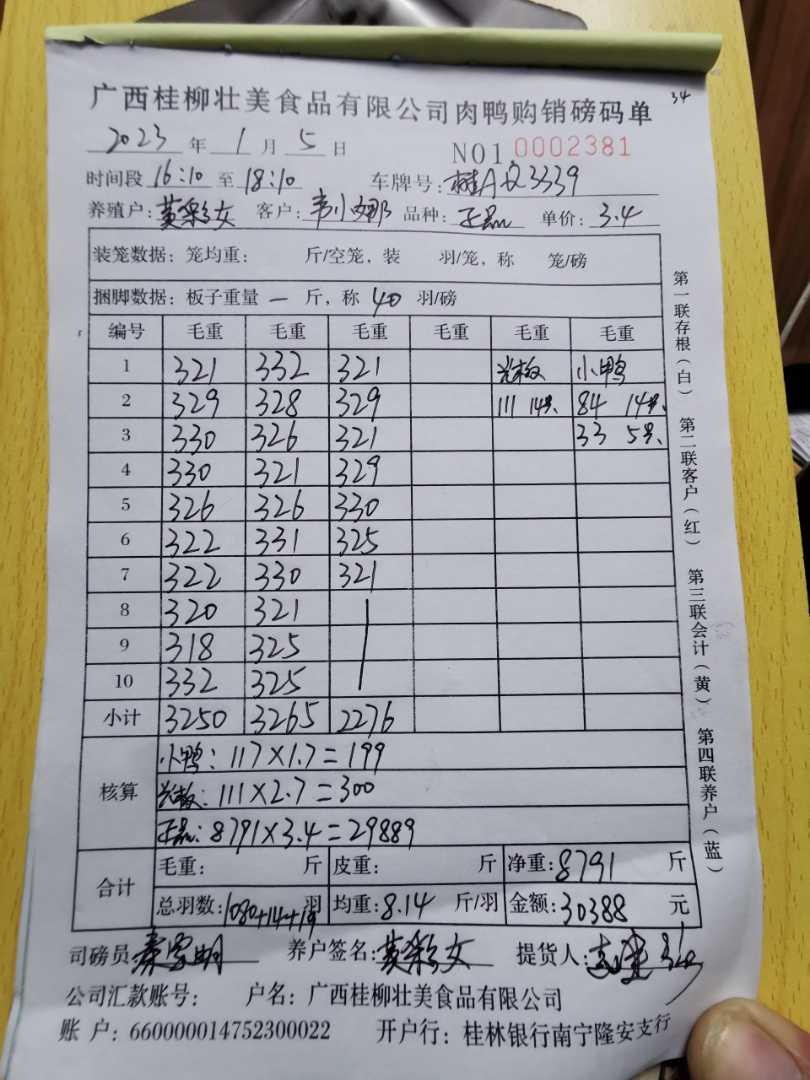 34
广西桂柳壮美食品有限公司肉鸭购销磅码单
2023 年 1 月 5 日 NO1 0002381
时间段 16:10 至 18:10 车牌号: 桂A 3339
养殖户: 黄彩女 客户: 韦小娜 品种: 正品 单价: 3.4
装笼数据: 笼均重: 斤/空笼, 装 羽/笼, 称 笼/磅
捆脚数据: 板子重量 一 斤, 称 40 羽/磅
编号 毛重 毛重 毛重 毛重 毛重 毛重
1 321 332 321 光板 小鸭
2 329 328 329 111 14只 84 14只
3 330 326 321 33 5只
4 330 321 329
5 326 326 330
6 322 331 325
7 322 330 321
8 320 321
9 318 325
10 332 325
小计 3250 3265 2276
小鸭: 117×1.7=199
核算 光板: 111×2.7=300
正品: 8791×3.4=29889
合计 毛重: 斤 皮重: 斤 净重: 8791 斤
总羽数: 1080+14+19 羽 均重: 8.14 斤/羽 金额: 30388 元
司磅员: 养户签名: 黄彩女 提货人:
公司汇款账号: 户名: 广西桂柳壮美食品有限公司
账 户: 660000014752300022 开户行: 桂林银行南宁隆安支行
第一联存根(白) 第二联客户(红) 第三联会计(黄) 第四联养户(蓝)